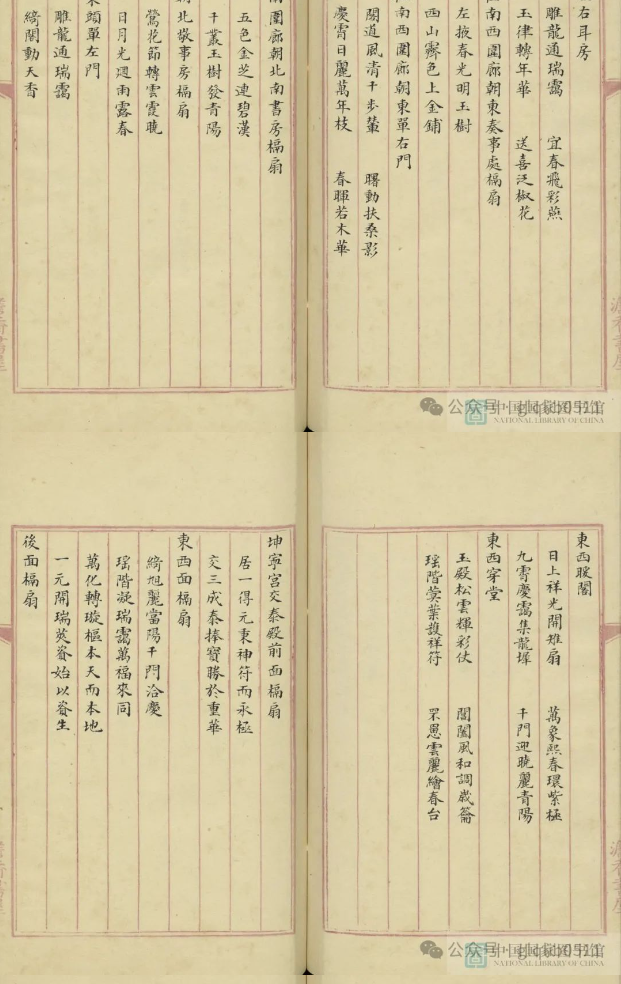 右耳房
雕龍通瑞靄 宜春飛彩燕
玉律轉年華 送喜泛椒花
南西圍廊朝東奏事處槅扇
左掖春光明玉樹
西山霽色上金鋪
南西圍廊朝東單右門
閣道風清千步輦 曙動扶桑影
慶霄日麗萬年枝 春暉若木華
圍廊朝北南書房槅扇
五色金芝連碧漢
千叢玉樹發青陽
朝北敬事房槅扇
鶯花節轉雲霞曉
日月光迴雨露春
東頭單左門
雕龍通瑞靄
綺閣動天香
公众号
中国国家图书馆
NATIONAL LIBRARY OF CHINA
東西暖閣
日上祥光開雉扇 萬象熙春環紫極
九霄慶靄集龍墀 千門迎曉麗青陽
東西穿堂
玉殿松雲輝彩仗 閶闔風和調歲籥
瑤階蓂葉護祥符 罘罳雲麗繪春台
坤寧宮交泰殿前面槅扇
居一得元東神符而永極
交三成泰捧寶勝於重華
東西面槅扇
綺旭麗當陽千門洽慶
瑤階凝瑞靄萬福來同
萬化轉璇樞本天而本地
一元開瑞莢資始以資生
後面槅扇
公众号
中国国家图书馆
NATIONAL LIBRARY OF CHINA